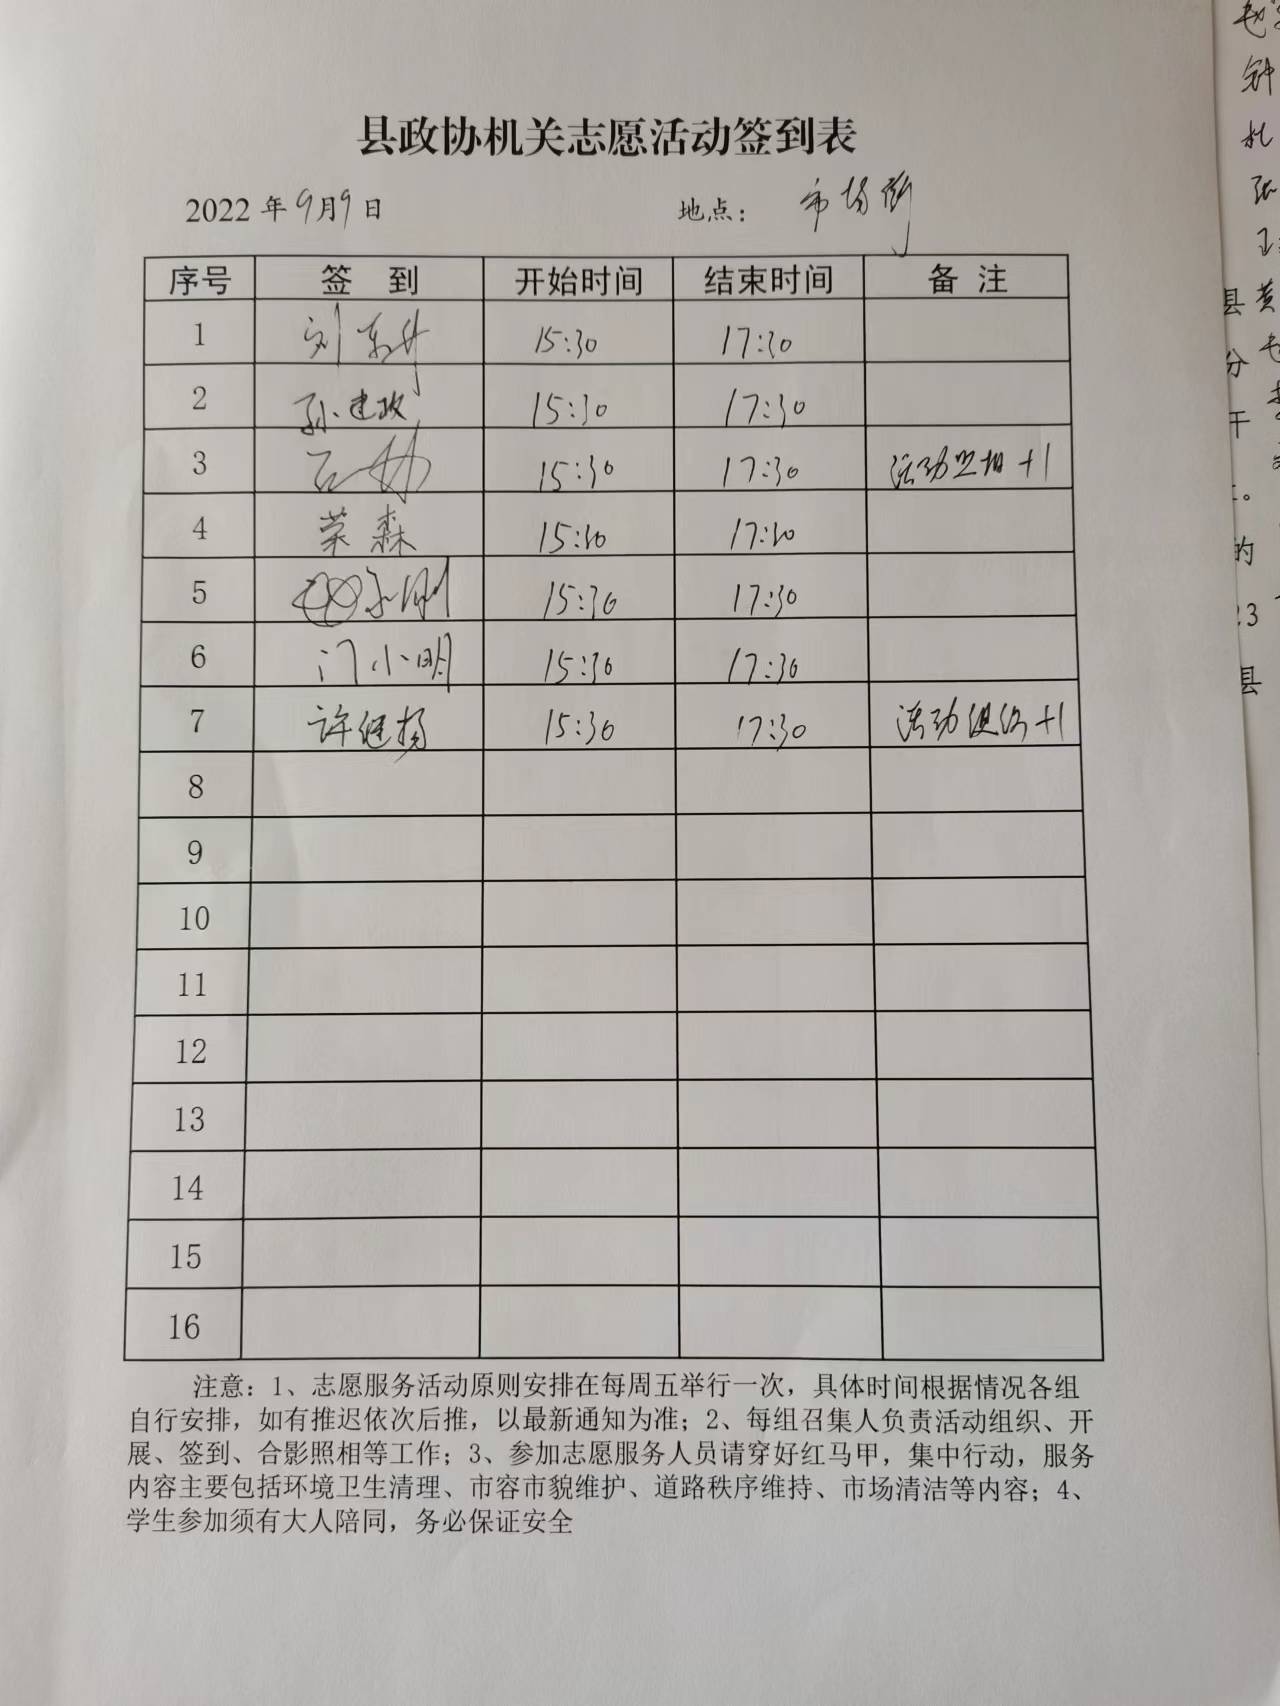 县政协机关志愿活动签到表
2022年9月9日 地点: 市场街
序号 签 到 开始时间 结束时间 备 注
1 刘东升 15:30 17:30
2 孙建政 15:30 17:30
3 15:30 17:30 活动照相+1
4 荣森 15:30 17:30
5 15:30 17:30
6 门小明 15:30 17:30
7 许继扬 15:30 17:30 活动组织+1
8
9
10
11
12
13
14
15
16
注意：1、志愿服务活动原则安排在每周五举行一次，具体时间根据情况各组
自行安排，如有推迟依次后推，以最新通知为准；2、每组召集人负责活动组织、开
展、签到、合影照相等工作；3、参加志愿服务人员请穿好红马甲，集中行动，服务
内容主要包括环境卫生清理、市容市貌维护、道路秩序维持、市场清洁等内容；4、
学生参加须有大人陪同，务必保证安全
钟
札
张
王
县 黄
分
干
。
的
23
县